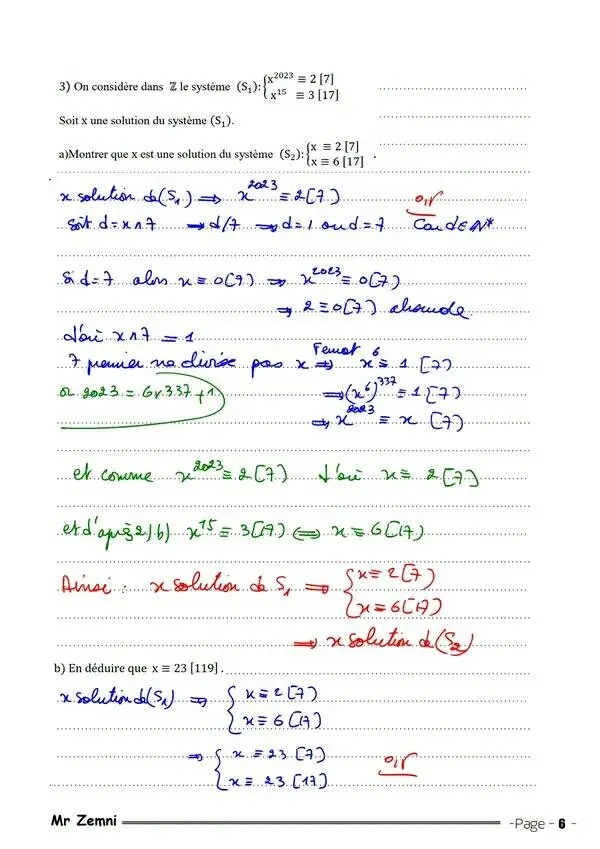 3) On considère dans ℤ le système (S₁): { x²⁰²³ ≡ 2 [7]
x¹⁵ ≡ 3 [17]
Soit x une solution du système (S₁).
a)Montrer que x est une solution du système (S₂): { x ≡ 2 [7]
x ≡ 6 [17] .
x solution de (S₁) ⟹ x²⁰²³ ≡ 2[7) or
Soit d = x ∧ 7 ⟹ d/7 ⟹ d = 1 ou d = 7 Car d ∈ ℕ*
Si d = 7 alors x ≡ 0[7) ⟹ x²⁰²³ ≡ 0[7)
⟹ 2 ≡ 0[7) absurde.
d'où x ∧ 7 = 1
7 premier ne divise pas x ⟹ Fermat x⁶ ≡ 1 [7)
or 2023 = 6 × 337 + 1 ⟹ (x⁶)³³⁷ ≡ 1 [7)
⟹ x²⁰²³ ≡ x [7)
et comme x²⁰²³ ≡ 2 [7) d'où x ≡ 2 [7)
et d'après 2) b) x¹⁵ ≡ 3[17) ⟺ x ≡ 6[17)
Ainsi : x solution de S₁ ⟹ { x ≡ 2[7)
x ≡ 6[17)
⟹ x solution de (S₂)
b) En déduire que x ≡ 23 [119] .
x solution de (S₁) ⟹ { x ≡ 2[7)
x ≡ 6[17)
⟹ { x ≡ 23 [7) or
x ≡ 23 [17)
Mr Zemni -Page - 6 -